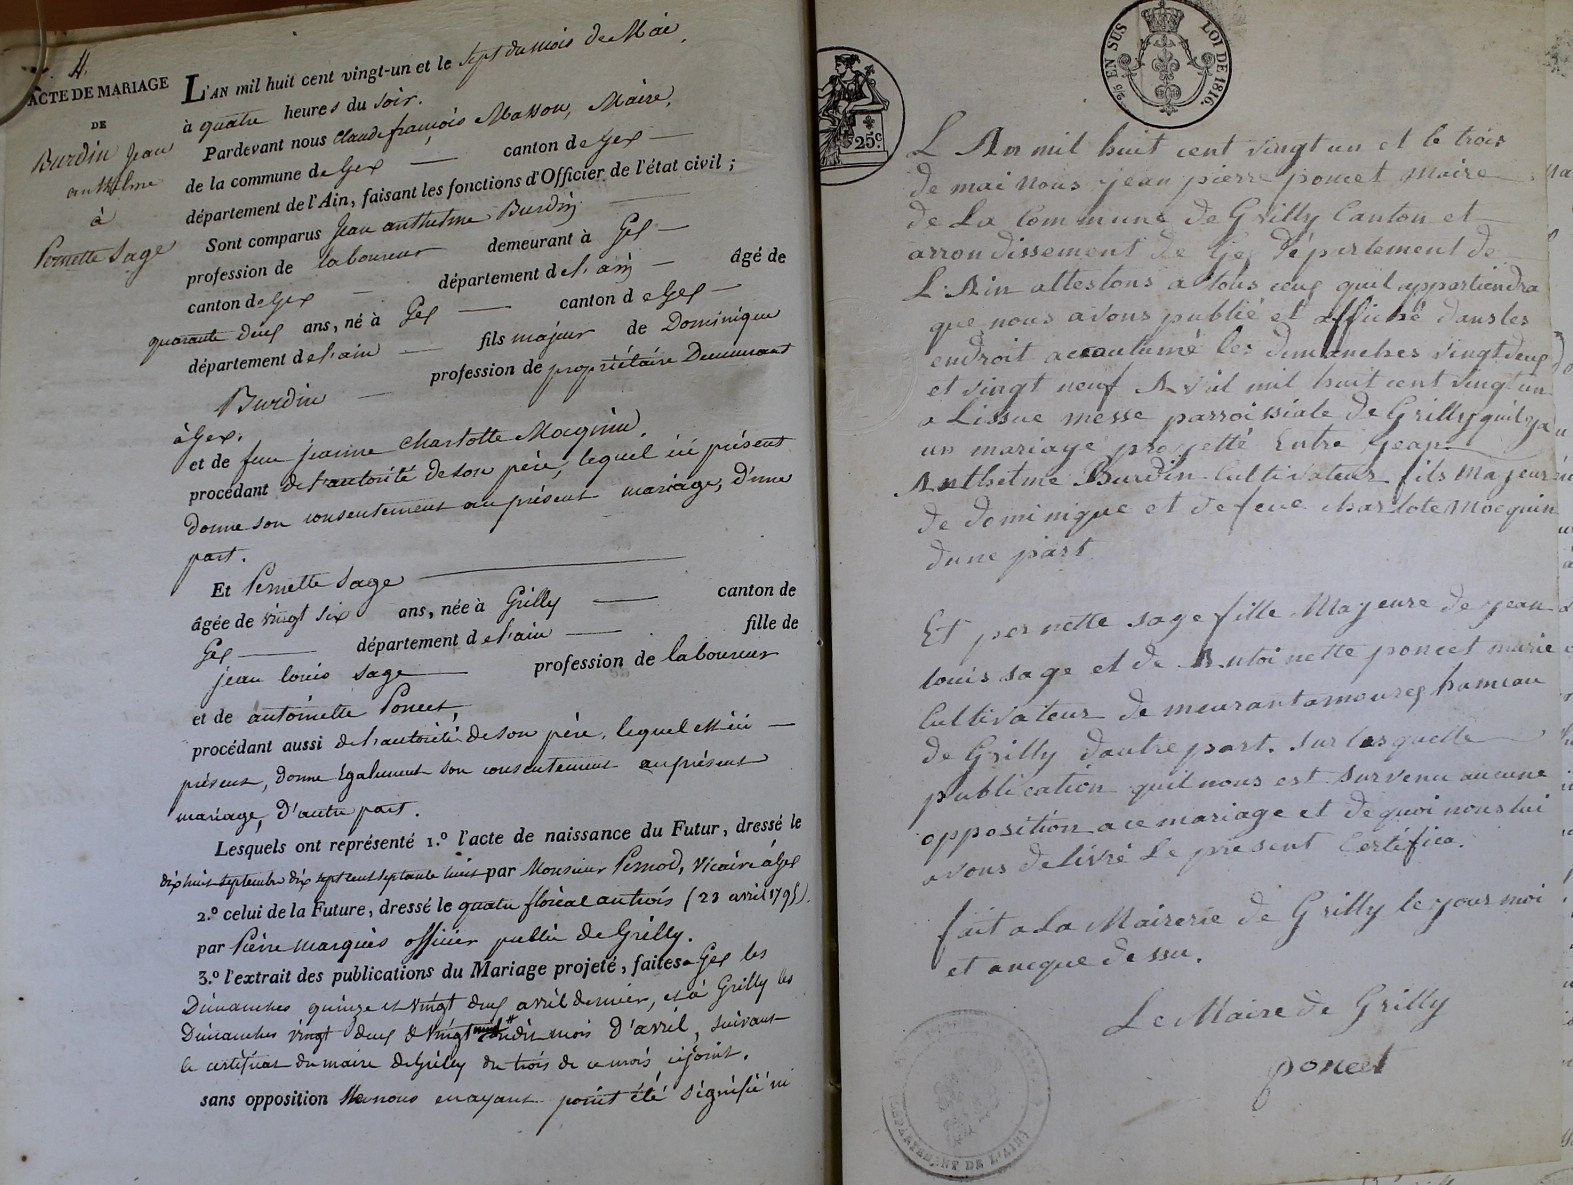 4.
ACTE DE MARIAGE
DE
Burdin Jean
anthelme
à
Pernette Sage
L'AN mil huit cent vingt-un et le sept du mois de Mai,
à quatre heures du soir.
Pardevant nous Claude françois Masson, Maire,
de la commune de Gex canton de Gex
département de l'Ain, faisant les fonctions d'Officier de l'état civil ;
Sont comparus Jean anthelme Burdin
profession de laboureur demeurant à Gex
canton de Gex département de l'ain âgé de
quarante deux ans, né à Gex canton de Gex
département de l'ain fils majeur de Dominique
Burdin profession de propriétaire Demeurant
à Gex.
et de feue jeanne Charlotte Moquin.
procédant de l'autorité de son père, lequel ici présent
donne son consentement au présent mariage, d'une
part.
Et Pernette Sage
âgée de vingt six ans, née à Grilly canton de
Gex département de l'ain fille de
jean louis sage profession de laboureur
et de antoinette Poncet
procédant aussi de l'autorité de son père, lequel est ici
présent, donne également son consentement au présent
mariage, d'autre part.
Lesquels ont représenté 1.º l'acte de naissance du Futur, dressé le
dix huit septembre dix sept cent septante huit par Monsieur Pernod, Vicaire à Gex
2.º celui de la Future, dressé le quatre floréal an trois (23 avril 1795).
par Pierre marquis officier public de Grilly.
3.º l'extrait des publications du Mariage projeté, faites à Gex les
Dimanches quinze et vingt deux avril dernier, et à Grilly les
Dimanches vingt deux & vingt neuf du mois d'avril, suivant
le certificat du maire de Grilly du trois de ce mois ci joint.
sans opposition Ne nous en ayant point été signifié ni
25 c
EN SUS
LOI DE 1816.
L An mil huit cent vingt un et le trois
de mai Nous jean pierre poncet Maire
de La Commune de Grilly Canton et
arrondissement de Gex département de
L'Ain attestons a tous ceux quil appartiendra
que nous avons publié et affiché dans les
endroit accoutumé les dimanches vingt deux
et vingt neuf Avril mil huit cent vingt un
a Lissue messe parroissiale de Grilly quil y a
un mariage projetté Entre jean
Anthelme Burdin Cultivateur fils Majeur
de dominique et de feue charlote Mocquin
dune part
Et pernette sage fille Majeure de jean
louis sage et de Antoinette poncet marie
Cultivateur demeurant a mourex hameau
de Grilly dautre part. Sur lesquelle
publication quil nous est survenu aucune
opposition a ce mariage et de quoi nous lui
avons delivré le present Certifica.
fait a La Mairerie de Grilly le jour moi
et an que dessu.
Le Maire de Grilly
poncet
DÉPARTEMENT DE L'AIN